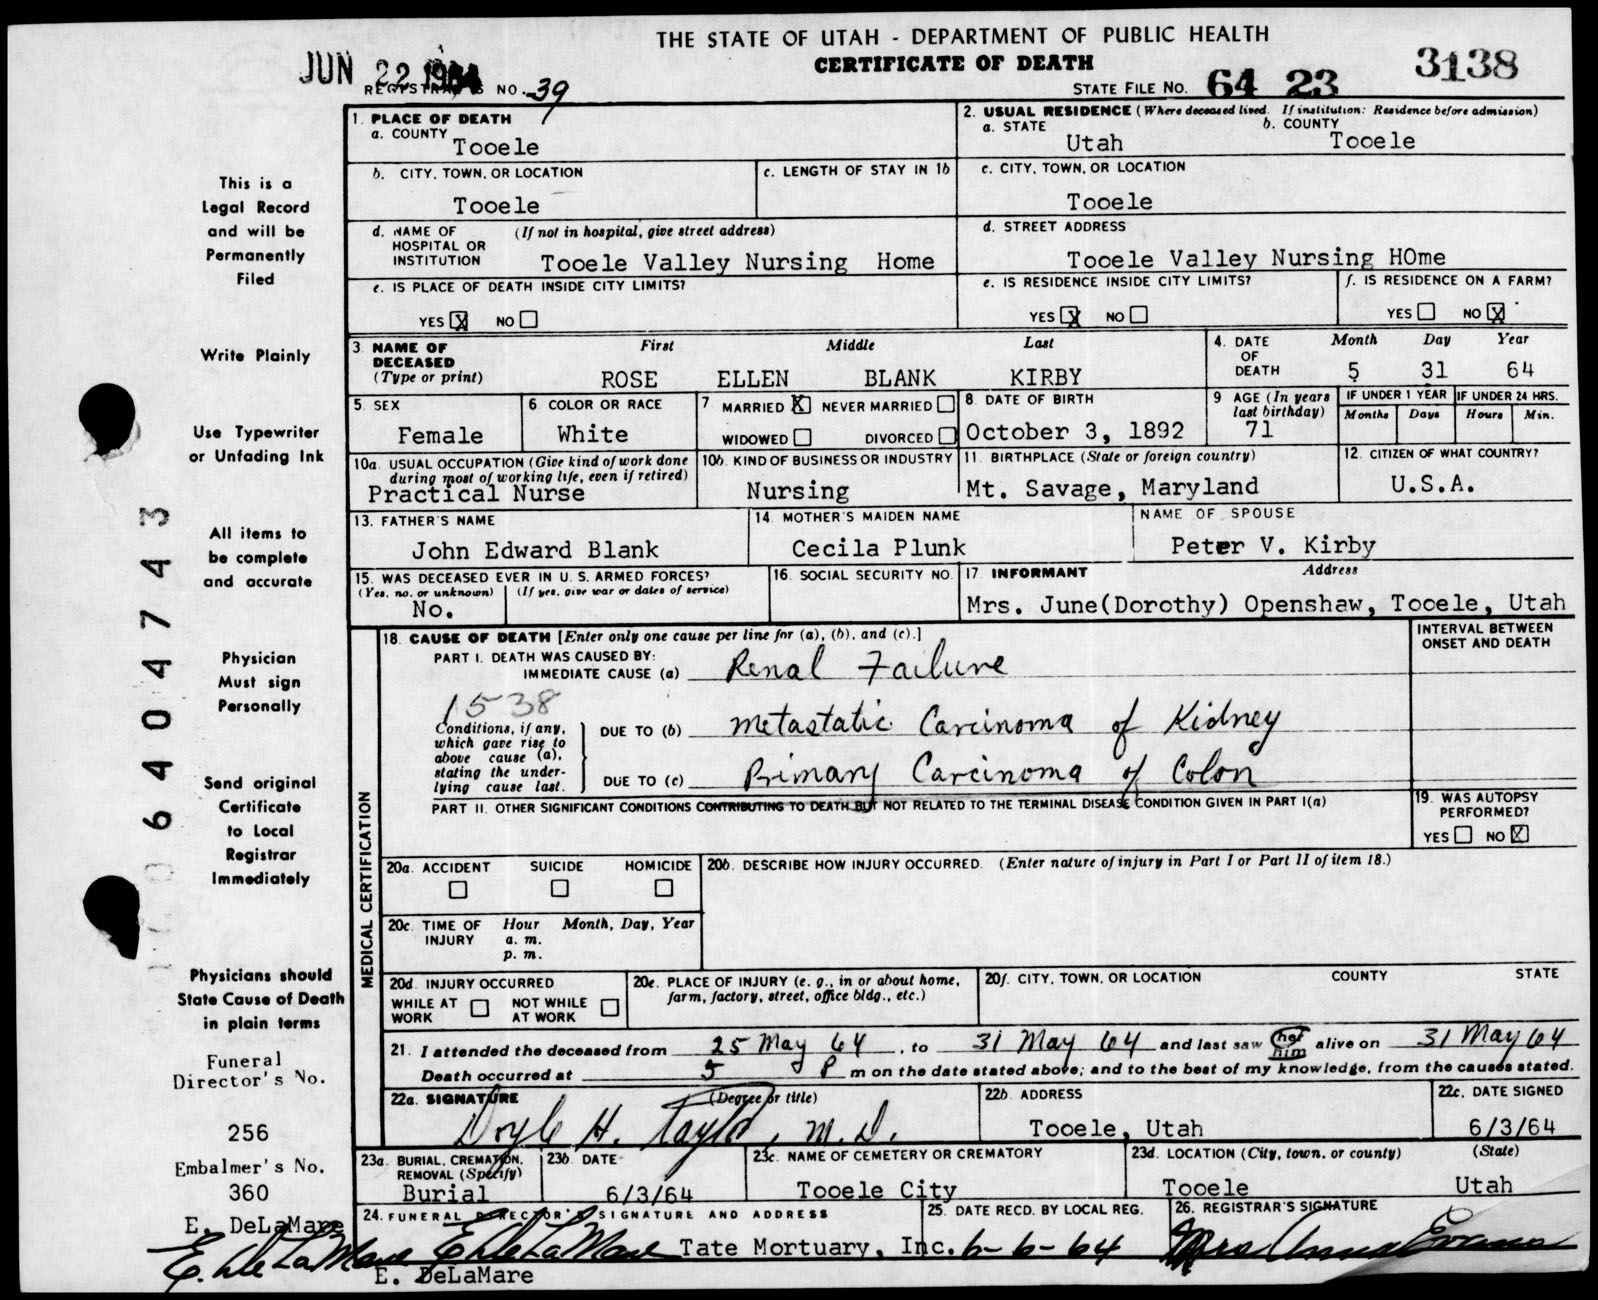 THE STATE OF UTAH - DEPARTMENT OF PUBLIC HEALTH
CERTIFICATE OF DEATH
JUN 22 1964
REGISTRAR'S NO. 39
STATE FILE NO. 64 23 3138
1. PLACE OF DEATH
a. COUNTY
Tooele
2. USUAL RESIDENCE (Where deceased lived. If institution: Residence before admission)
a. STATE b. COUNTY
Utah Tooele
b. CITY, TOWN, OR LOCATION
Tooele
c. LENGTH OF STAY IN 1b
c. CITY, TOWN, OR LOCATION
Tooele
d. NAME OF HOSPITAL OR INSTITUTION (If not in hospital, give street address)
Tooele Valley Nursing Home
d. STREET ADDRESS
Tooele Valley Nursing HOme
e. IS PLACE OF DEATH INSIDE CITY LIMITS?
YES X NO
e. IS RESIDENCE INSIDE CITY LIMITS?
YES X NO
f. IS RESIDENCE ON A FARM?
YES NO X
3. NAME OF DECEASED (Type or print)
First Middle Last
ROSE ELLEN BLANK KIRBY
4. DATE OF DEATH
Month Day Year
5 31 64
5. SEX
Female
6. COLOR OR RACE
White
7. MARRIED X NEVER MARRIED
WIDOWED DIVORCED
8. DATE OF BIRTH
October 3, 1892
9. AGE (In years last birthday)
71
IF UNDER 1 YEAR
Months Days
IF UNDER 24 HRS.
Hours Min.
10a. USUAL OCCUPATION (Give kind of work done during most of working life, even if retired)
Practical Nurse
10b. KIND OF BUSINESS OR INDUSTRY
Nursing
11. BIRTHPLACE (State or foreign country)
Mt. Savage, Maryland
12. CITIZEN OF WHAT COUNTRY?
U.S.A.
13. FATHER'S NAME
John Edward Blank
14. MOTHER'S MAIDEN NAME
Cecila Plunk
NAME OF SPOUSE
Peter V. Kirby
15. WAS DECEASED EVER IN U. S. ARMED FORCES?
(Yes, no, or unknown) (If yes, give war or dates of service)
No.
16. SOCIAL SECURITY NO.
17. INFORMANT Address
Mrs. June(Dorothy) Openshaw, Tooele, Utah
MEDICAL CERTIFICATION
18. CAUSE OF DEATH [Enter only one cause per line for (a), (b), and (c).]
INTERVAL BETWEEN ONSET AND DEATH
PART I. DEATH WAS CAUSED BY:
IMMEDIATE CAUSE (a) Renal Failure
1538
Conditions, if any, which gave rise to above cause (a), stating the underlying cause last.
DUE TO (b) Metastatic Carcinoma of Kidney
DUE TO (c) Primary Carcinoma of Colon
PART II. OTHER SIGNIFICANT CONDITIONS CONTRIBUTING TO DEATH BUT NOT RELATED TO THE TERMINAL DISEASE CONDITION GIVEN IN PART I(a)
19. WAS AUTOPSY PERFORMED?
YES NO X
20a. ACCIDENT SUICIDE HOMICIDE
20b. DESCRIBE HOW INJURY OCCURRED. (Enter nature of injury in Part I or Part II of item 18.)
20c. TIME OF INJURY Hour Month, Day, Year
a. m.
p. m.
20d. INJURY OCCURRED
WHILE AT WORK NOT WHILE AT WORK
20e. PLACE OF INJURY (e. g., in or about home, farm, factory, street, office bldg., etc.)
20f. CITY, TOWN, OR LOCATION COUNTY STATE
21. I attended the deceased from 25 May 64, to 31 May 64 and last saw her him alive on 31 May 64
Death occurred at 5 P m on the date stated above; and to the best of my knowledge, from the causes stated.
22a. SIGNATURE (Degree or title)
Doyle H. Taylor, M.D.
22b. ADDRESS
Tooele, Utah
22c. DATE SIGNED
6/3/64
23a. BURIAL, CREMATION, REMOVAL (Specify)
Burial
23b. DATE
6/3/64
23c. NAME OF CEMETERY OR CREMATORY
Tooele City
23d. LOCATION (City, town, or county) (State)
Tooele Utah
24. FUNERAL DIRECTOR'S SIGNATURE AND ADDRESS
E. DeLaMare Tate Mortuary, Inc.
E. DeLaMare
25. DATE RECD. BY LOCAL REG.
6-6-64
26. REGISTRAR'S SIGNATURE
Mrs Anna Evans
This is a
Legal Record
and will be
Permanently
Filed
Write Plainly
Use Typewriter
or Unfading Ink
All items to
be complete
and accurate
Physician
Must sign
Personally
Send original
Certificate
to Local
Registrar
Immediately
Physicians should
State Cause of Death
in plain terms
Funeral
Director's No.
256
Embalmer's No.
360
E. DeLaMare
E. DeLaMare
006404743